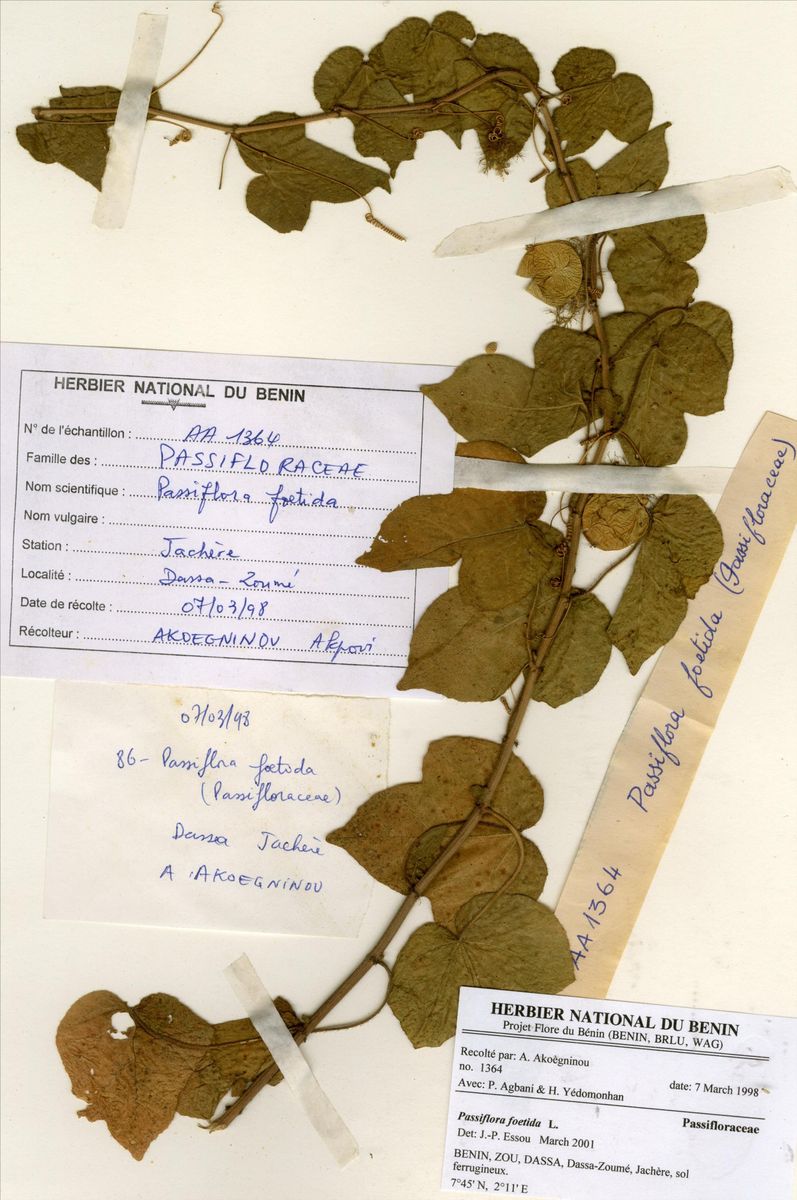 HERBIER NATIONAL DU BENIN
N° de l'échantillon : AA 1364
Famille des : PASSIFLORACEAE
Nom scientifique : Passiflora foetida
Nom vulgaire :
Station : Jachère
Localité : Dassa-Zoumé
Date de récolte : 07/03/98
Récolteur : AKOEGNINOU Akpovi
07/03/98
86- Passiflora foetida
(Passifloraceae)
Dassa Jachère
A. AKOEGNINOU
AA 1364 Passiflora foetida (Passifloraceae)
HERBIER NATIONAL DU BENIN
Projet Flore du Bénin (BENIN, BRLU, WAG)
Recolté par: A. Akoègninou
no. 1364 date: 7 March 1998
Avec: P. Agbani & H. Yédomonhan
Passiflora foetida L. Passifloraceae
Det: J.-P. Essou March 2001
BENIN, ZOU, DASSA, Dassa-Zoumé, Jachère, sol
ferrugineux.
7°45' N, 2°11' E